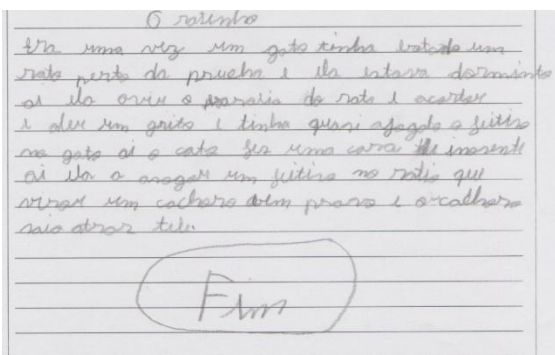 O ratinho
Era uma vez um gato tinha botado um
rato perto da prueba e ela estava dormindo
ai ela ovir o baralia do rato e acordor
e deu um grito e tinha quasi afogado o feitiso
no gato ai o gato fez uma cara de inosente
ai ela o a um feitiso no ratio que
virar um cachoro bem pravo e o calhoro
saio atraz tele.
Fim